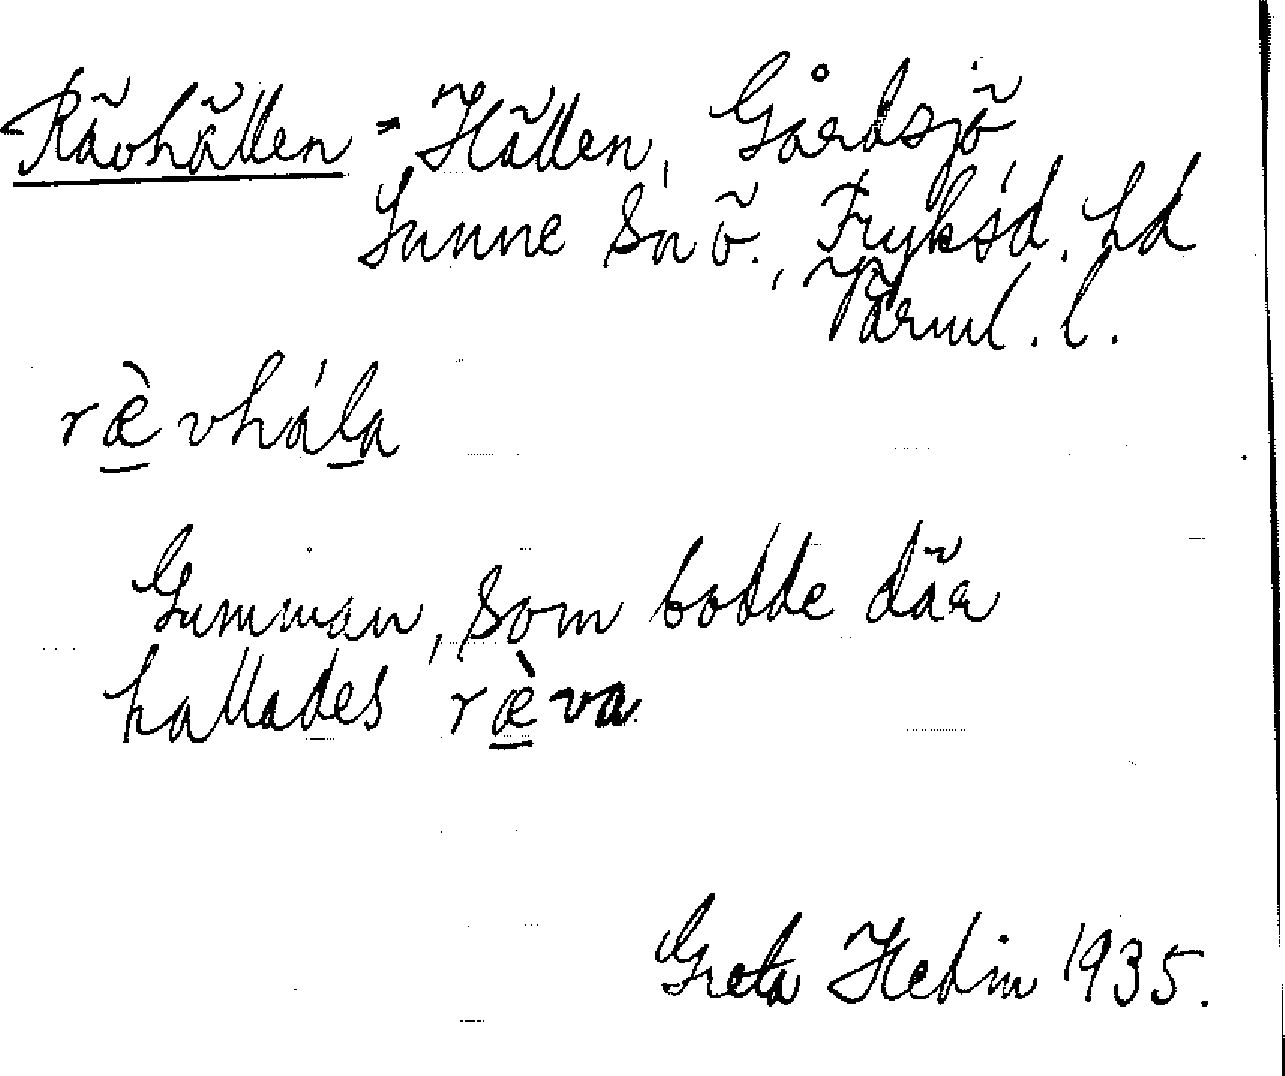 Rävhällen = Hällen, Gårdsjö
Sunne sn ö., Fryksd. hd
Värml. l.
ræ̀vhála
Gumman, som bodde där
kallades ræ̀va
Greta Hedin 1935.